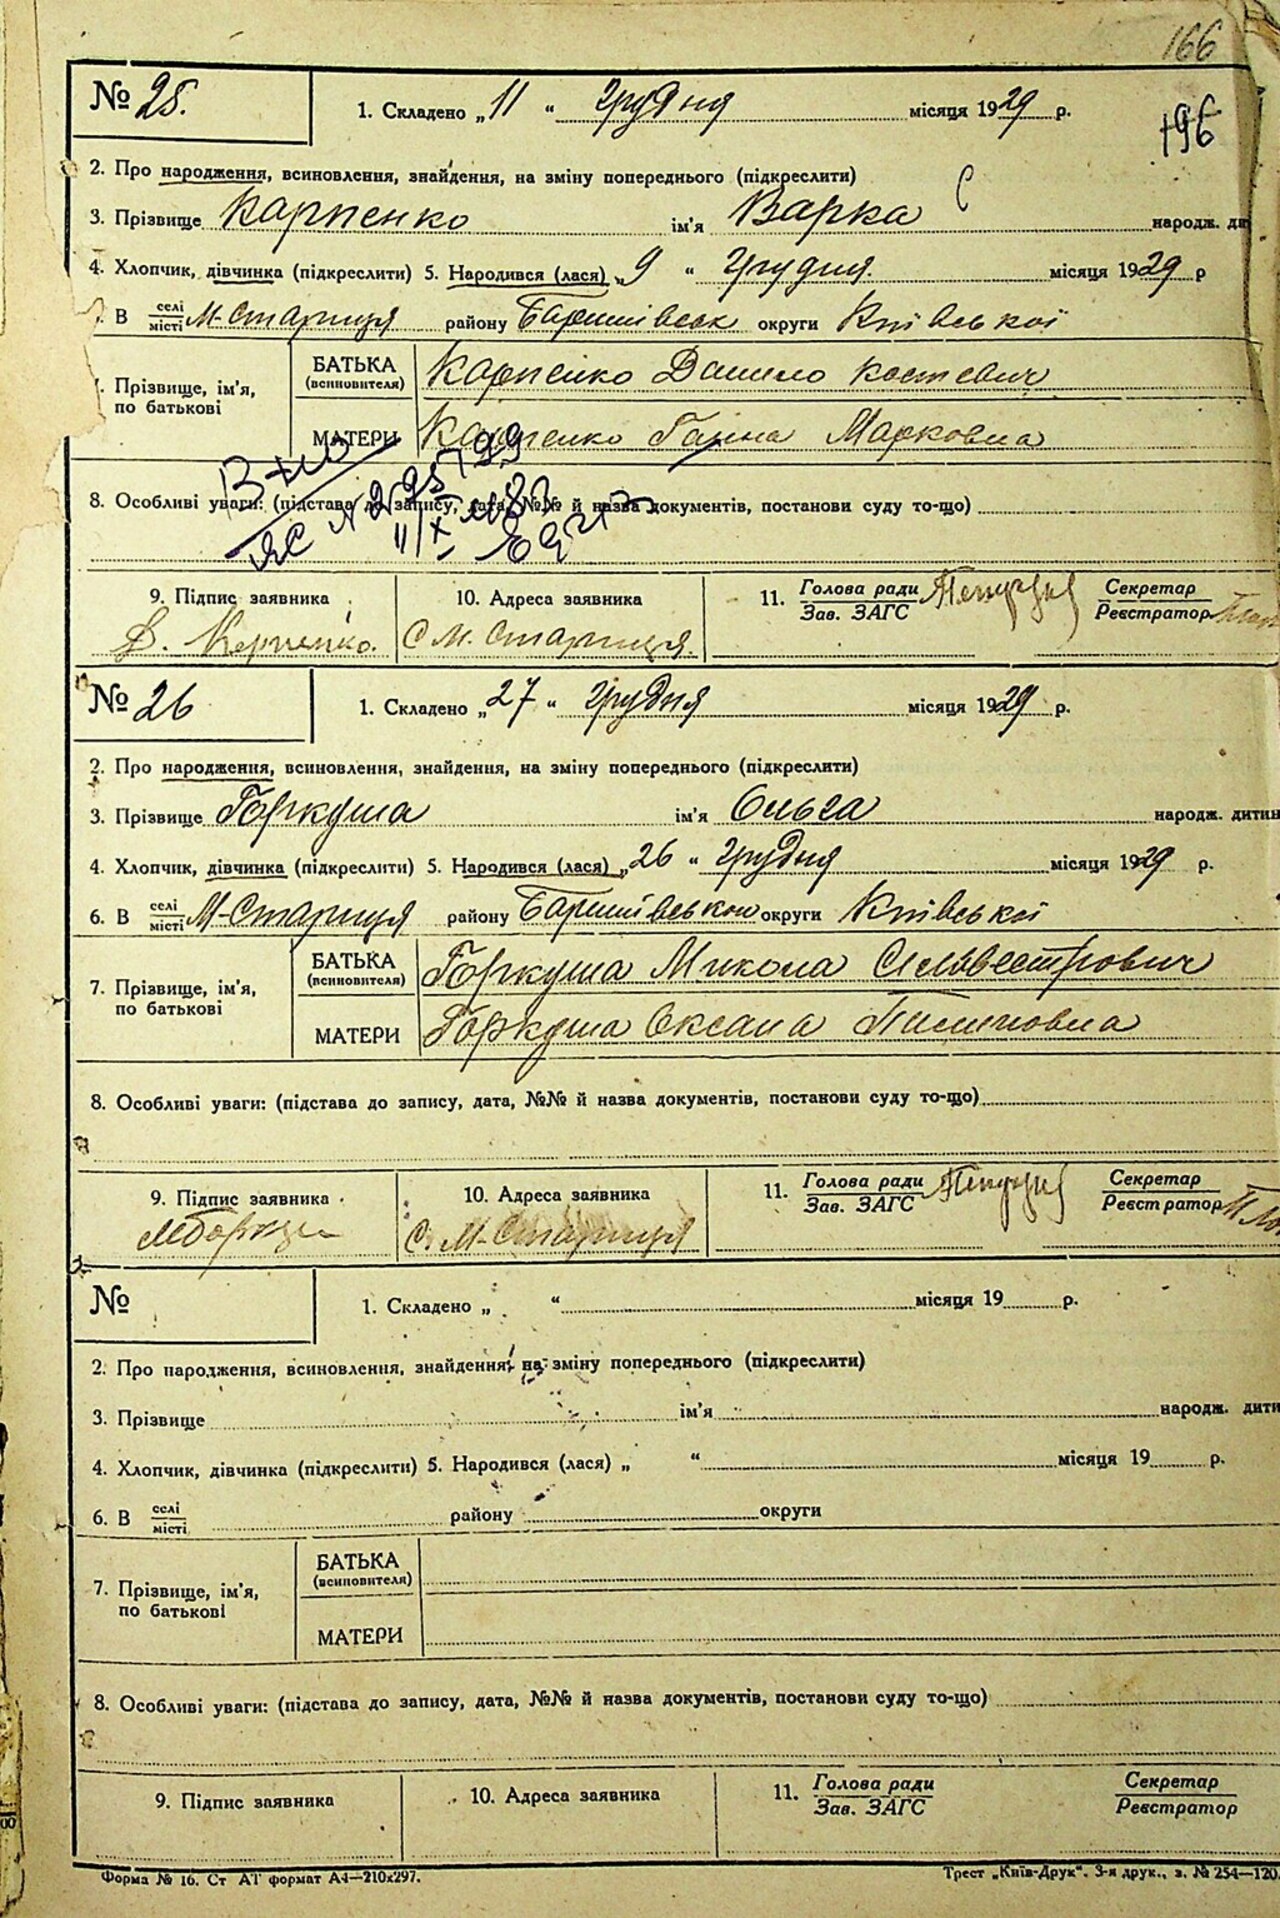 166
196
№ 25.
1. Складено „11“ грудня місяця 1929 р.
2. Про народження, всиновлення, знайдення, на зміну попереднього (підкреслити)
3. Прізвище Карпенко ім'я Варка народж. ди
4. Хлопчик, дівчинка (підкреслити) 5. Народився (лася) „9“ грудня. місяця 1929 р
В селі місті М-Стариця району Баришівськ округи Київської
Прізвище, ім'я, по батькові
БАТЬКА (всиновителя) Карпенко Данило Костевич
МАТЕРИ Карпенко Ганна Марковна
8. Особливі уваги: (підстава до запису, дата, №№ й назва документів, постанови суду то-що)
9. Підпис заявника 10. Адреса заявника 11. Голова ради Зав. ЗАГС Секретар Реєстратор
Д. Карпенко. С М. Стариця.
№ 26
1. Складено „27“ грудня місяця 1929 р.
2. Про народження, всиновлення, знайдення, на зміну попереднього (підкреслити)
3. Прізвище Боркуша ім'я Ольга народж. дитин
4. Хлопчик, дівчинка (підкреслити) 5. Народився (лася) „26“ грудня місяця 1929 р.
6. В селі місті М-Стариця району Баришівськой округи Київської
7. Прізвище, ім'я, по батькові
БАТЬКА (всиновителя) Боркуша Микола Сильвестрович
МАТЕРИ Боркуша Оксана Пилиповна
8. Особливі уваги: (підстава до запису, дата, №№ й назва документів, постанови суду то-що)
9. Підпис заявника 10. Адреса заявника 11. Голова ради Зав. ЗАГС Секретар Реєстратор
С. М-Стариця
№
1. Складено „ “ місяця 19 р.
2. Про народження, всиновлення, знайдення, на зміну попереднього (підкреслити)
3. Прізвище ім'я народж. дити
4. Хлопчик, дівчинка (підкреслити) 5. Народився (лася) „ “ місяця 19 р.
6. В селі місті району округи
7. Прізвище, ім'я, по батькові
БАТЬКА (всиновителя)
МАТЕРИ
8. Особливі уваги: (підстава до запису, дата, №№ й назва документів, постанови суду то-що)
9. Підпис заявника 10. Адреса заявника 11. Голова ради Зав. ЗАГС Секретар Реєстратор
Форма № 16. Ст АТ формат А4—210х297. Трест „Київ-Друк“. 3-я друк., з. № 254—120.